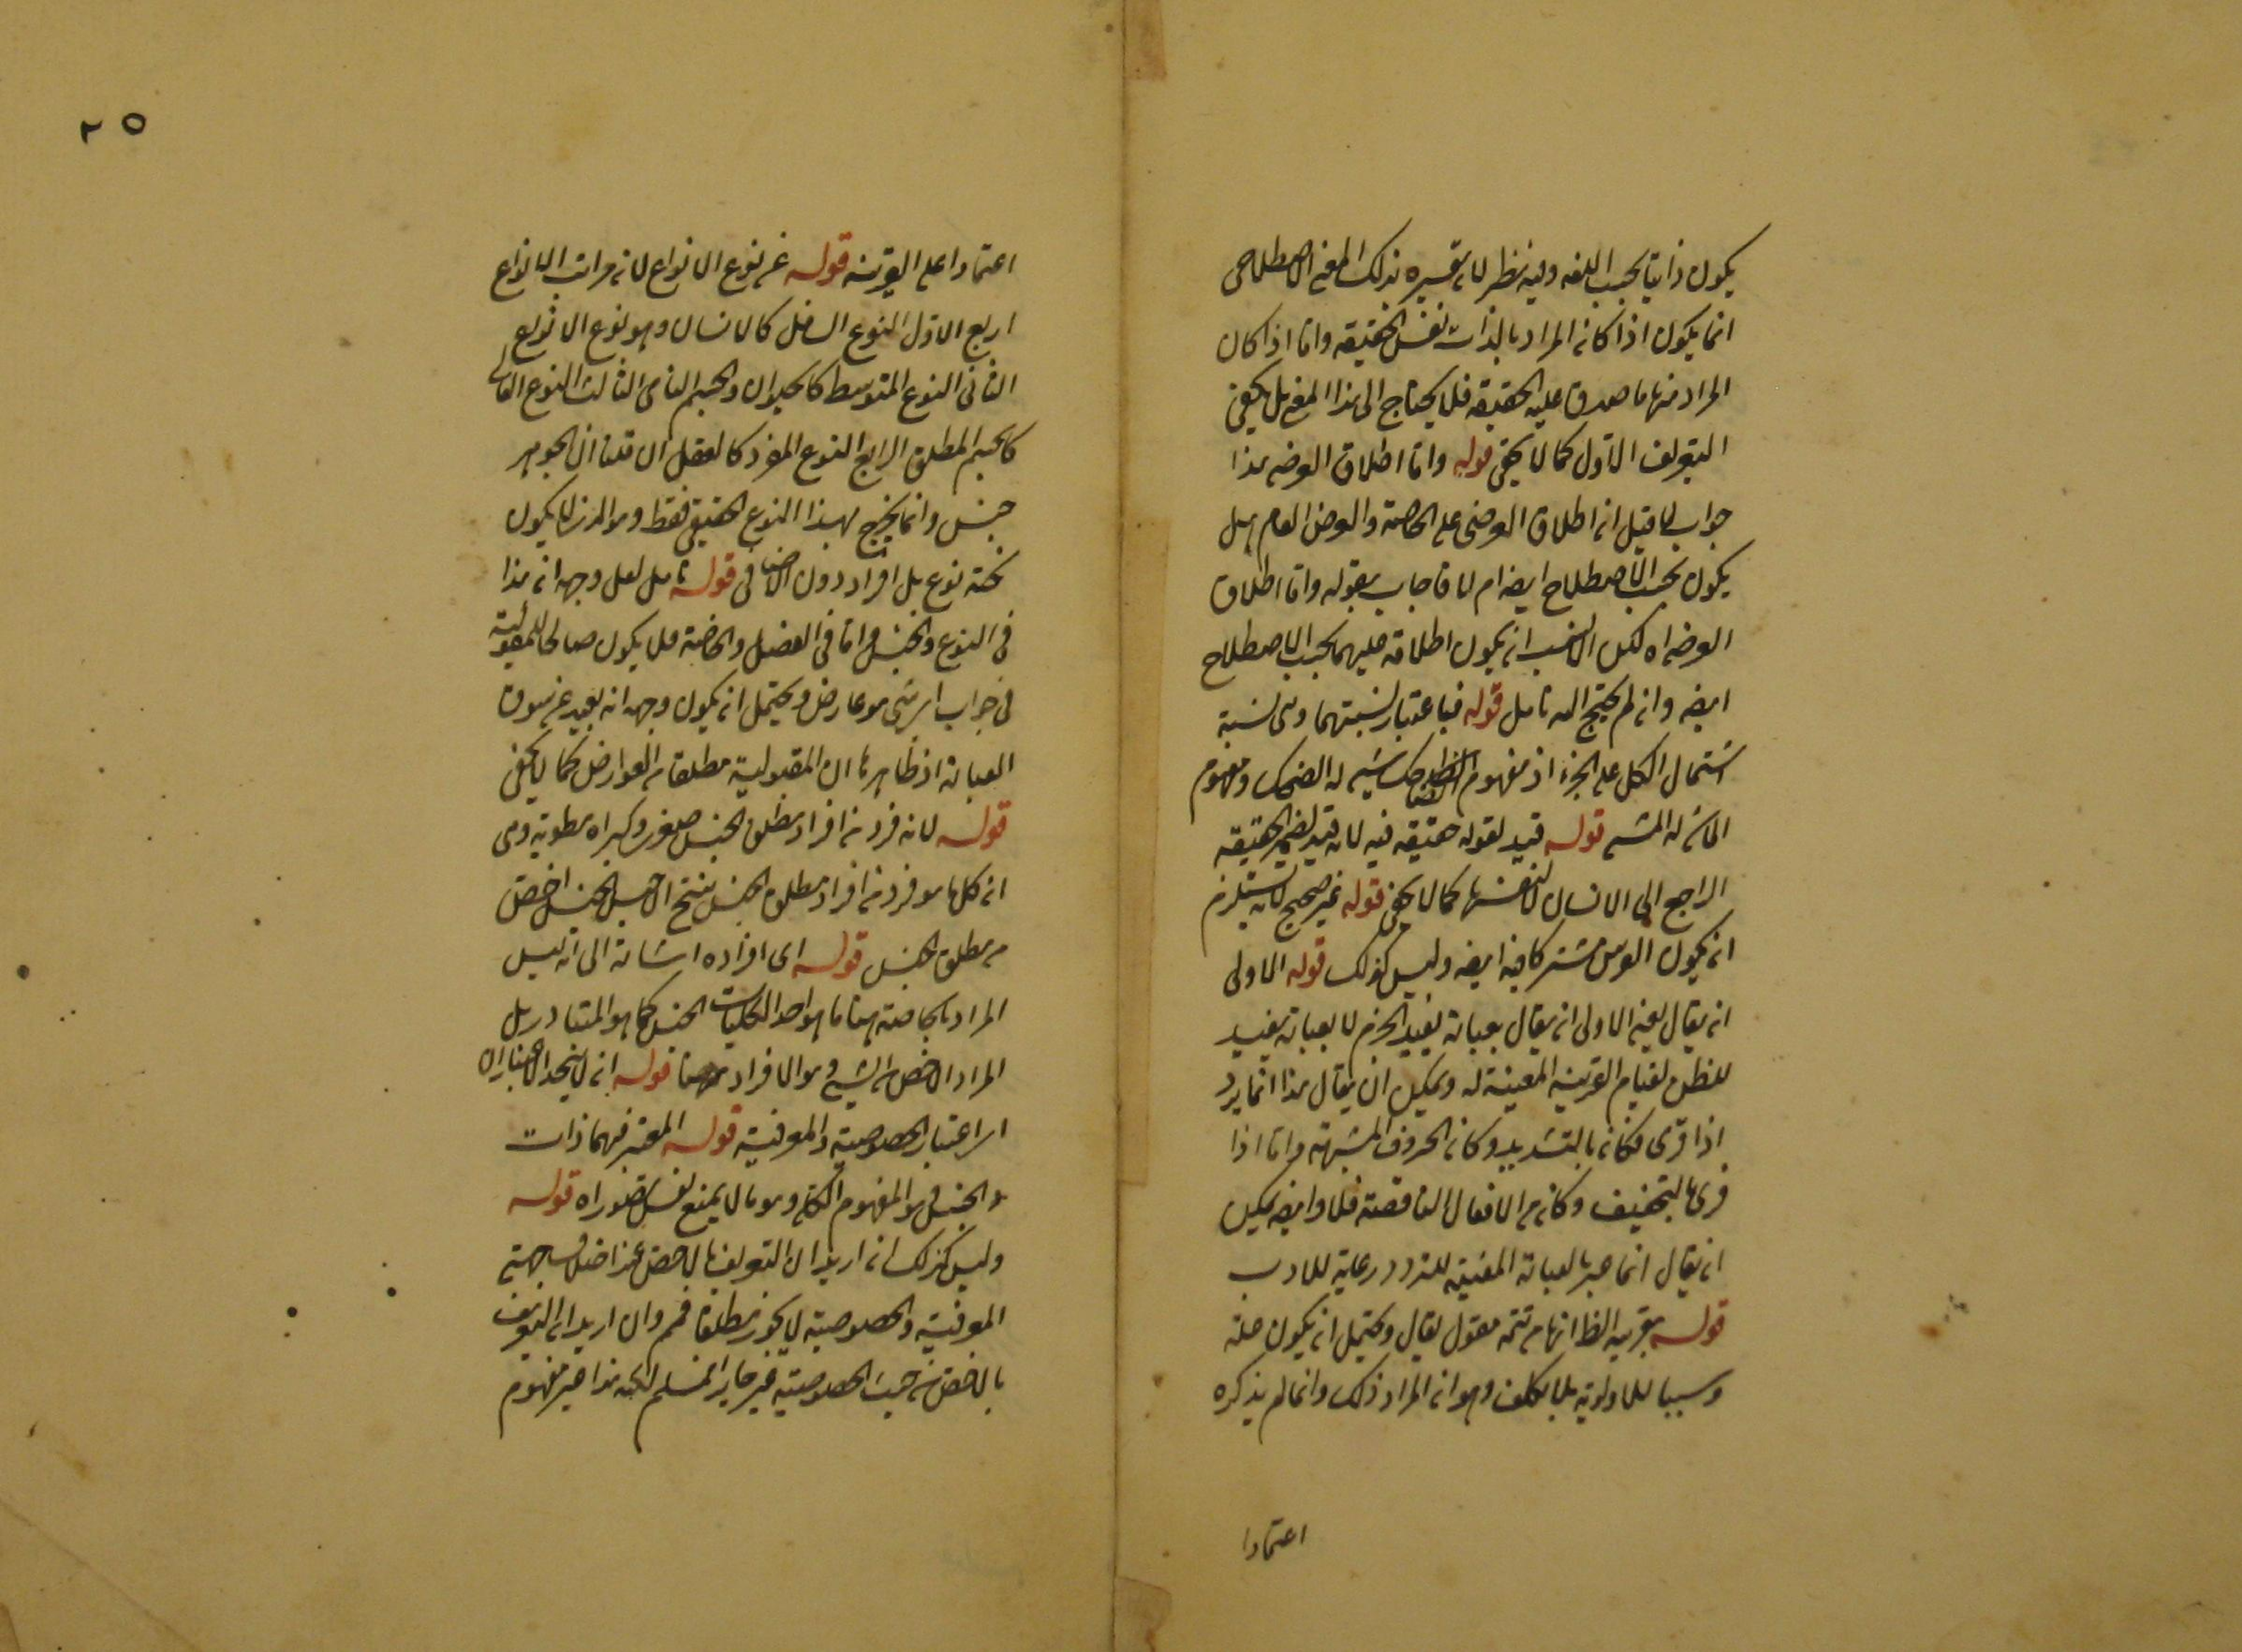 يكون ذاتيا بحسب اللغه وفيه نظر لان تفسيره بذلك المعنى الاصطلاحى
انما يكون اذا كان المراد بالذات نفس الحقيقه واما اذا كان
المراد منها ما صدق عليه الحقيقه فلا يحتاج الى هذا المعنى بل يكفى
التعريف الاول كما لا يخفى قوله واما اطلاق العرضى هذا
جواب لما قيل ان اطلاق العرضى على الخاصة والعرض العام هل
يكون بحسب الاصطلاح ايضا ام لا فاجاب بقوله واما اطلاق
العرضى اه لكن الانسب ان يكون اطلاقه عليهما بحسب الاصطلاح
ايضا وان لم يحتج اليه تامل قوله فباعتبار نسبتهما وهى نسبة
اشتمال الكل على الجزء اذ مفهوم الضاحك شىء له الضحك ومفهوم
الماشى له المشى قوله قيد لقوله حقيقه فيه لانه قيد لضمير الحقيقه
الراجع الى الانسان لا لنفسها كما لا يخفى قوله غير صحيح لانه يستلزم
ان يكون الفرس مشتركا فيه ايضا وليس كذلك قوله الاولى
ان يقال يعنى الاولى ان يقال بعبارة يفيد الجزم لا بعبارة يفيد
للظن لقيام القرينه المعينة له ويمكن ان يقال هذا انما يرد
اذا قرى فكان بالتشديد وكان من الحروف المشبهة واما اذا
قرى بالتخفيف وكان من الافعال الناقصة فلا وايضا يمكن
ان يقال انما عبر بالعبارة المفيدة للتردد رعاية للادب
قوله بقرينه الظ انها من تتمة مقول يقال ويحتمل ان يكون علة
وسببا للاولوية بلا تكلف وهو ان المراد ذلك وانما لم يذكره
اعتمادا
٢٥
اعتمادا على القرينه قوله عن نوع الانواع لان مراتب الانواع
اربع الاول النوع السافل كالانسان وهو نوع الانواع
الثانى النوع المتوسط كالحيوان والجسم النامى الثالث النوع العالى
كالجسم المطلق الرابع النوع المفرد كالعقل ان قلنا ان الجوهر
جنس وانما يخرج بهذا النوع الحقيقى فقط وهو الذى لا يكون
تحته نوع بل افراد دون الاضافى قوله تامل لعل وجهه ان هذا
فى النوع والجنس واما فى الفصل والخاصة فلا يكون صالحا للمقولية
فى جواب اى شىء هو عارض ويحتمل ان يكون وجهه انه بعيد عن سوق
العبارة اذ ظاهرها ان المقبولية مطلقا من العوارض كما لا يخفى
قوله لانه فرد من افراد مطلق الجنس صغرى وكبراه مطوية وهى
ان كل ما هو فرد من افراد مطلق الجنس ينتج ان جنس الجنس اخص
من مطلق الجنس قوله اى افراده اشارة الى انه ليس
المراد بالخاصة هنا ما هو احد الكليات الخمس كما هو المتبادر بل
المراد الاخص من الشىء وهو الافراد هنا قوله ان لا يتحد الاعتباران
اى اعتبار الخصوصية والمعرفية قوله المعتبر فيهما ذات
والجنس هو المفهوم الكلى وهو ما لا يمنع نفس تصوراه قوله
وليس كذلك ان اريد ان التعريف بالاخص عند اختلاف جهتى
المعرفية والخصوصية لا يجوز مطلقا فمم وان اريد ان التعريف
بالاخص من حيث الخصوصية غير جايز فمسلم لكنه هذا غير مفهوم